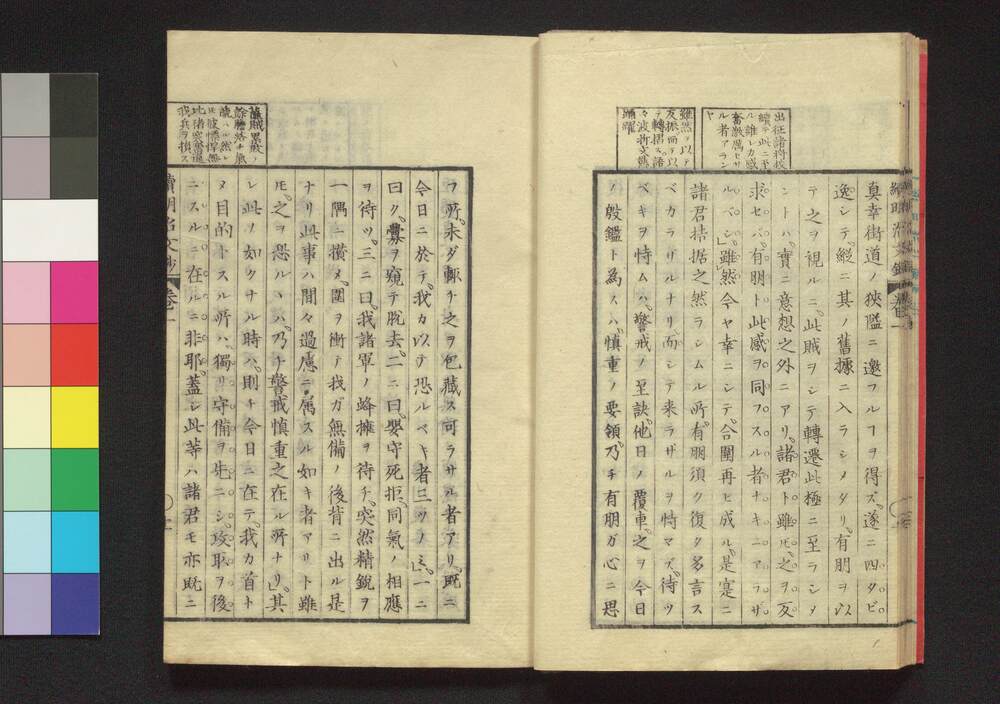 出征諸将校
續テ此ニ至
ル誰レカ感
奮激厲セサ
ル者アラン
ヤ
雖然ヲ以テ
反振而ヲ以
テ轉摺ス諸
々波折文勢
踊躍
真幸街道ノ狹隘ニ邀フルヿヲ得ズ遂ニ四タビ
逸シテ縦ニ其ノ舊據ニ入ラシメタリ有朋ヲ以
テ之ヲ視ルニ此賊ヲシテ轉遷此極ニ至ラシメ
ントハ實ニ意想之外ニアリ諸君ト雖𪜈之ヲ反
求セバ有朋ト此感ヲ同フスル者ナキニアラザ
ルベシ雖然今ヤ幸ニシテ合圍再ヒ成ル是寔ニ
諸君拮据之然ラシムル所有朋須ク復タ多言ス
ベカラザルナリ而シテ来ラザルヲ恃マズ待ツ
ベキヲ恃ムハ警戒ノ至訣他日ノ覆車之ヲ今日
ノ殷鑑ト為スハ慎重ノ要領乃チ有朋ガ心ニ思
續明治文鈔 卷一
薩賊累敗ノ
餘膽落チ氣
ヲ所未ダ輙チ之ヲ包藏ス可ラサル者アリ既ニ
今日ニ於テ我カ以テ恐ルベキ者三ツノミ一ニ
曰ク釁ヲ窺テ脱去二ニ曰嬰守死拒同氣ノ相應
ヲ待ツ三ニ曰我諸軍ノ蜂擁ヲ待チ突然精鋭ヲ
一隅ニ攅メ圍ヲ衝テ我ガ無備ノ後背ニ出ル是
ナリ此事ハ間々過慮ニ属スル如キ者アリト雖
𪜈之ヲ恐ルヽハ乃チ警戒慎重之在ル所ナリ其
レ此ノ如クナル時ハ則チ今日ニ在テ我カ首ト
メ目的トスル所ハ獨リ守備ヲ先ニシ攻取ヲ後
ニスルニ在ルニ非耶蓋シ此等ハ諸君モ亦既ニ
續明治文鈔 卷一